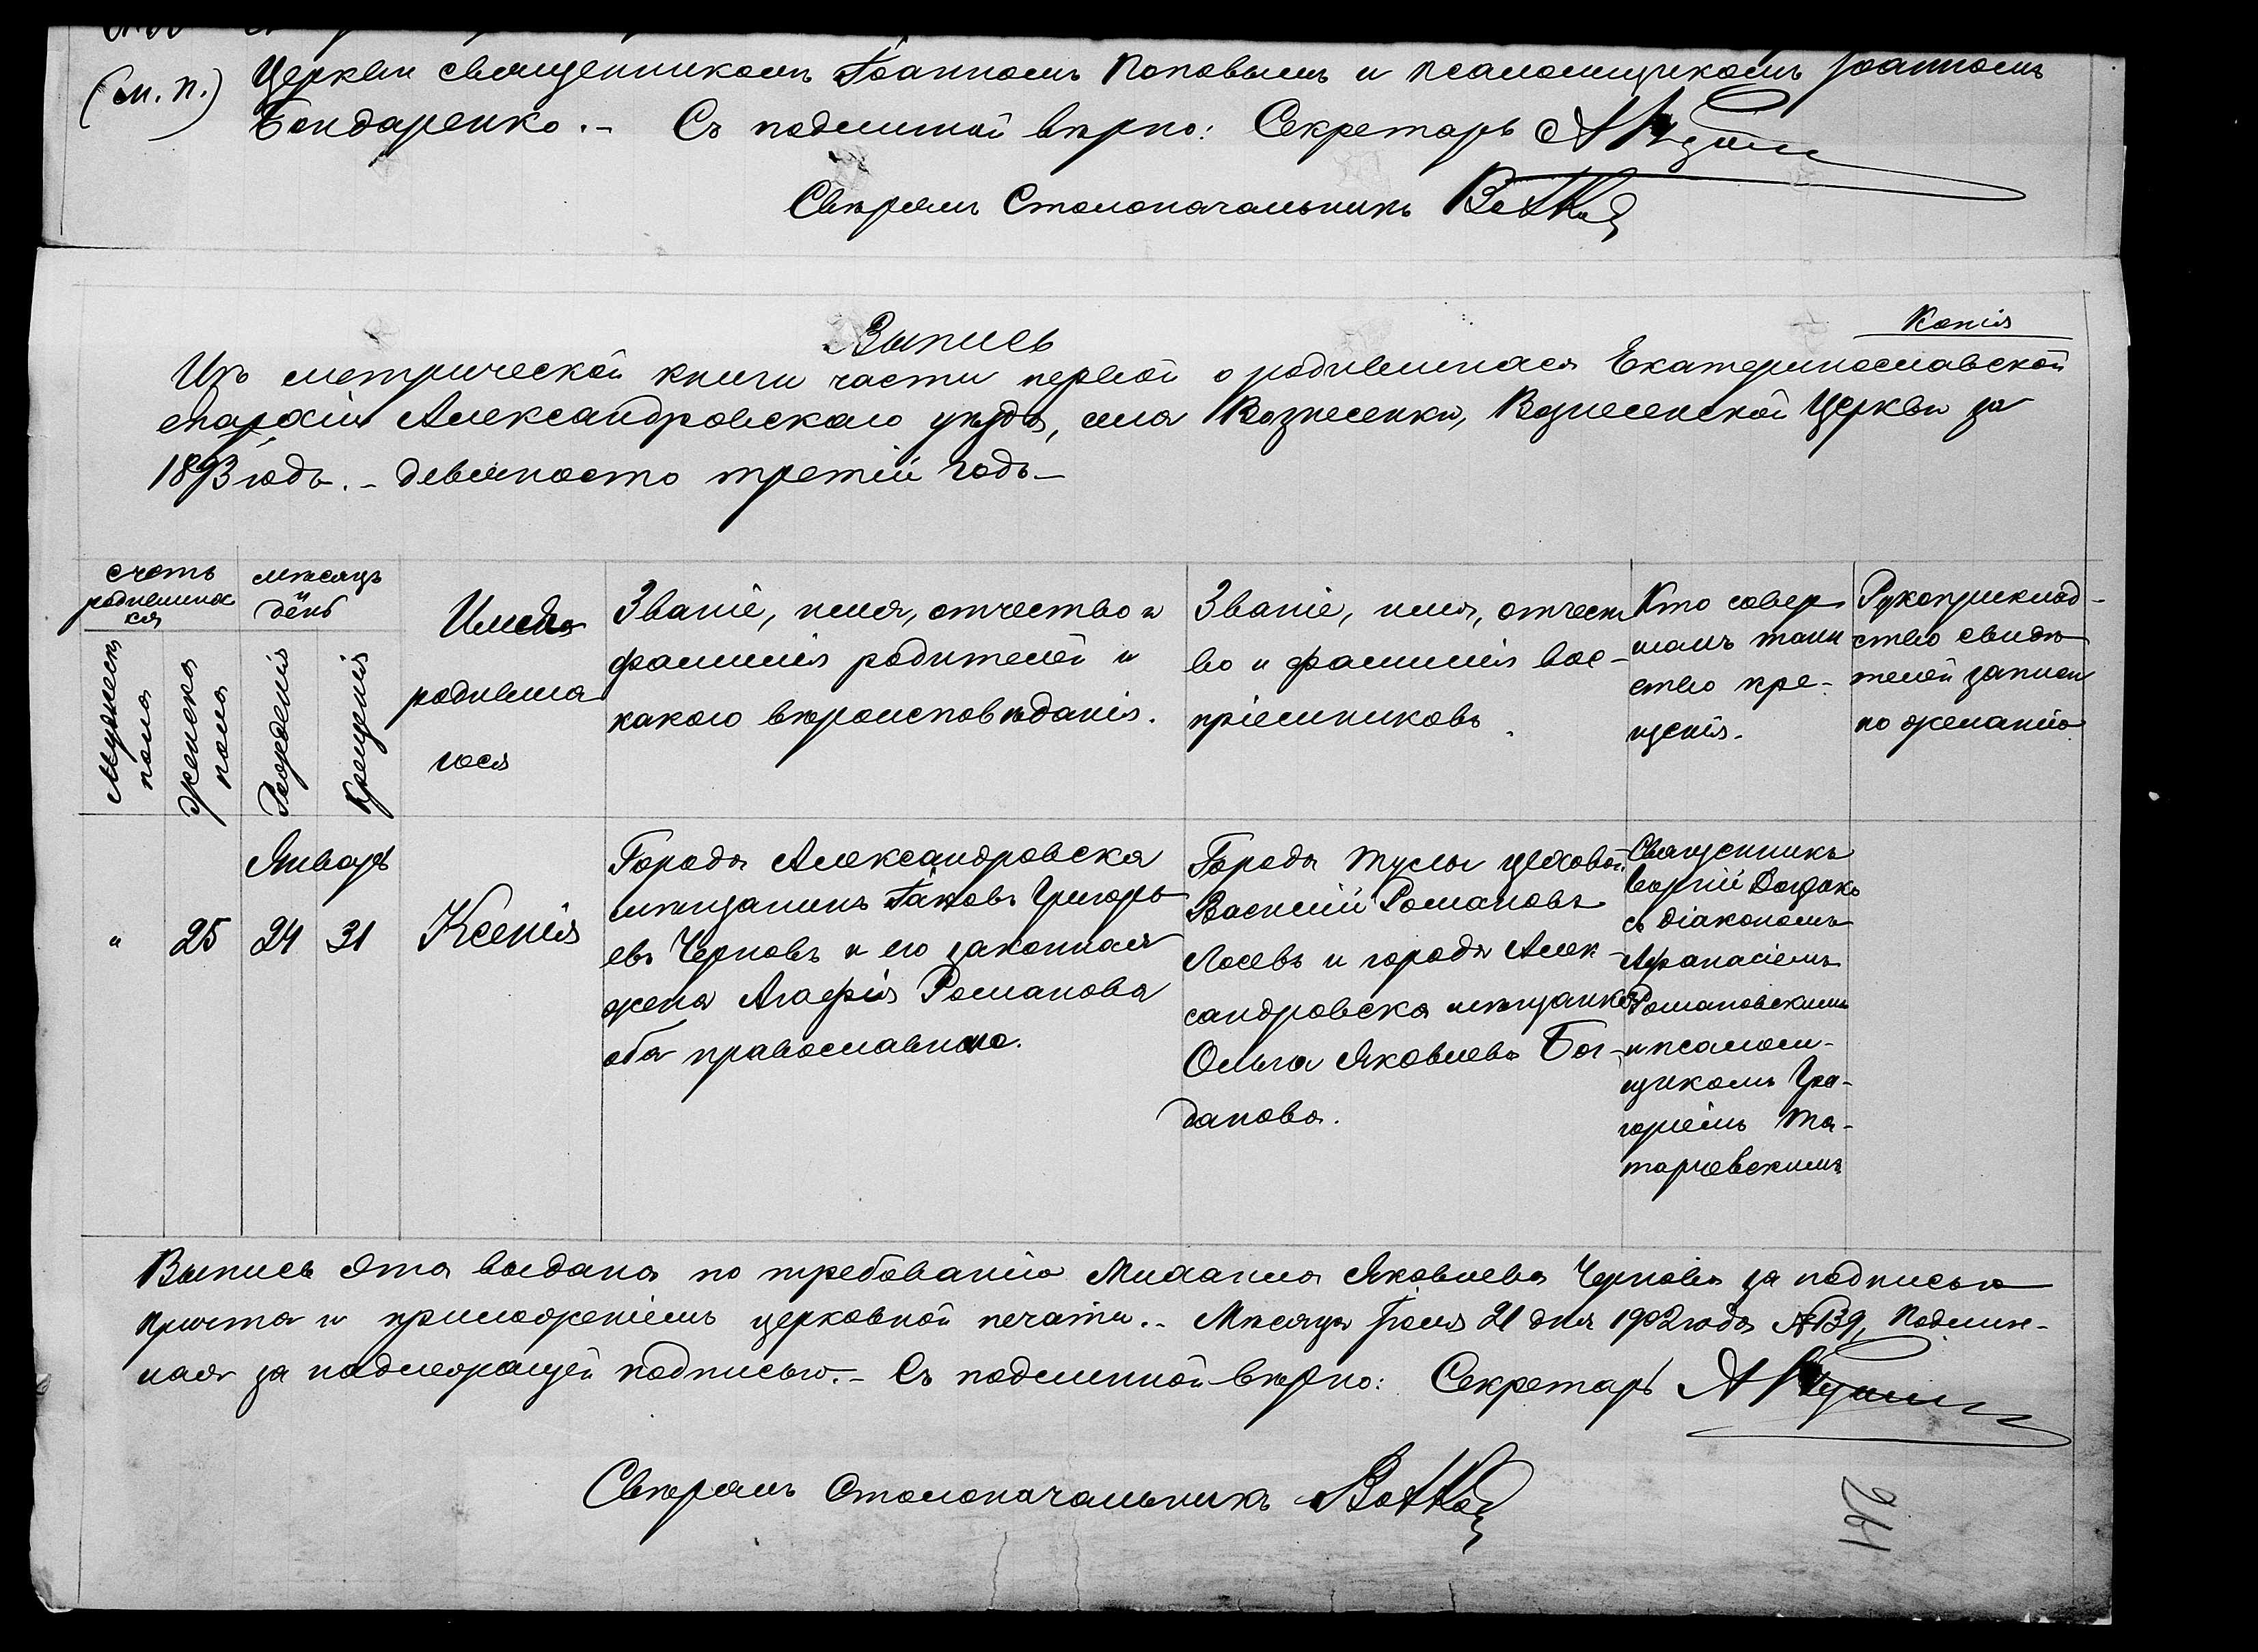 (м. п.) Церкви священникомъ Іоанномъ Поповымъ и псаломщикомъ Іоанномъ
Бондаренко.- Съ подлинной вѣрно: Секретарь
Свѣрялъ Столоначальникъ
Копія
Выпись
Изъ метрической книги части первой о родившихся Екатеринославской
епархіи Александровскаго уѣзда, села Вознесенки, Вознесенской Церкви за
1893 годъ.- девяносто третій годъ-
счетъ
родившихся
мѣсяцъ
и
день
Мужеск
пола
женска
пола
Рожденія
Крещенія
Имена
родивша
гося
Званіе, имя, отчество и
фамилія родителей и
какого вѣроисповѣданія.
Званіе, имя, отчест
во и фамилія вос-
пріемниковъ.
Кто совер
шалъ таин
ство кре-
щенія.
Рукоприклад-
ство свидѣ
телей записи
по желанію
Январь
" 25 24 31 Ксенія
Города Александровска
мѣщанинъ Іаковъ Григорь
евъ Черновъ и его законная
жена Агафія Романова
оба православные.
Города Тулы цеховой
Василій Романовъ
Лосевъ и города Алек-
сандровска мѣщанка
Ольга Яковлева Бог-
данова.
Священникъ
Георгій
съ діакономъ
Афанасіемъ
Романовскимъ
и псалом-
щикомъ Гри-
горіемъ Та-
тарчевскимъ
Выпись эта выдана по требованію Михаила Яковлева Чернова за подписью
причта и приложеніемъ церковной печати.- Мѣсяца Іюля 21 дня 1902 года №139, Подлин-
ная за надлежащей подписью.- Съ подлинной вѣрно: Секретарь
Свѣрялъ Столоначальникъ